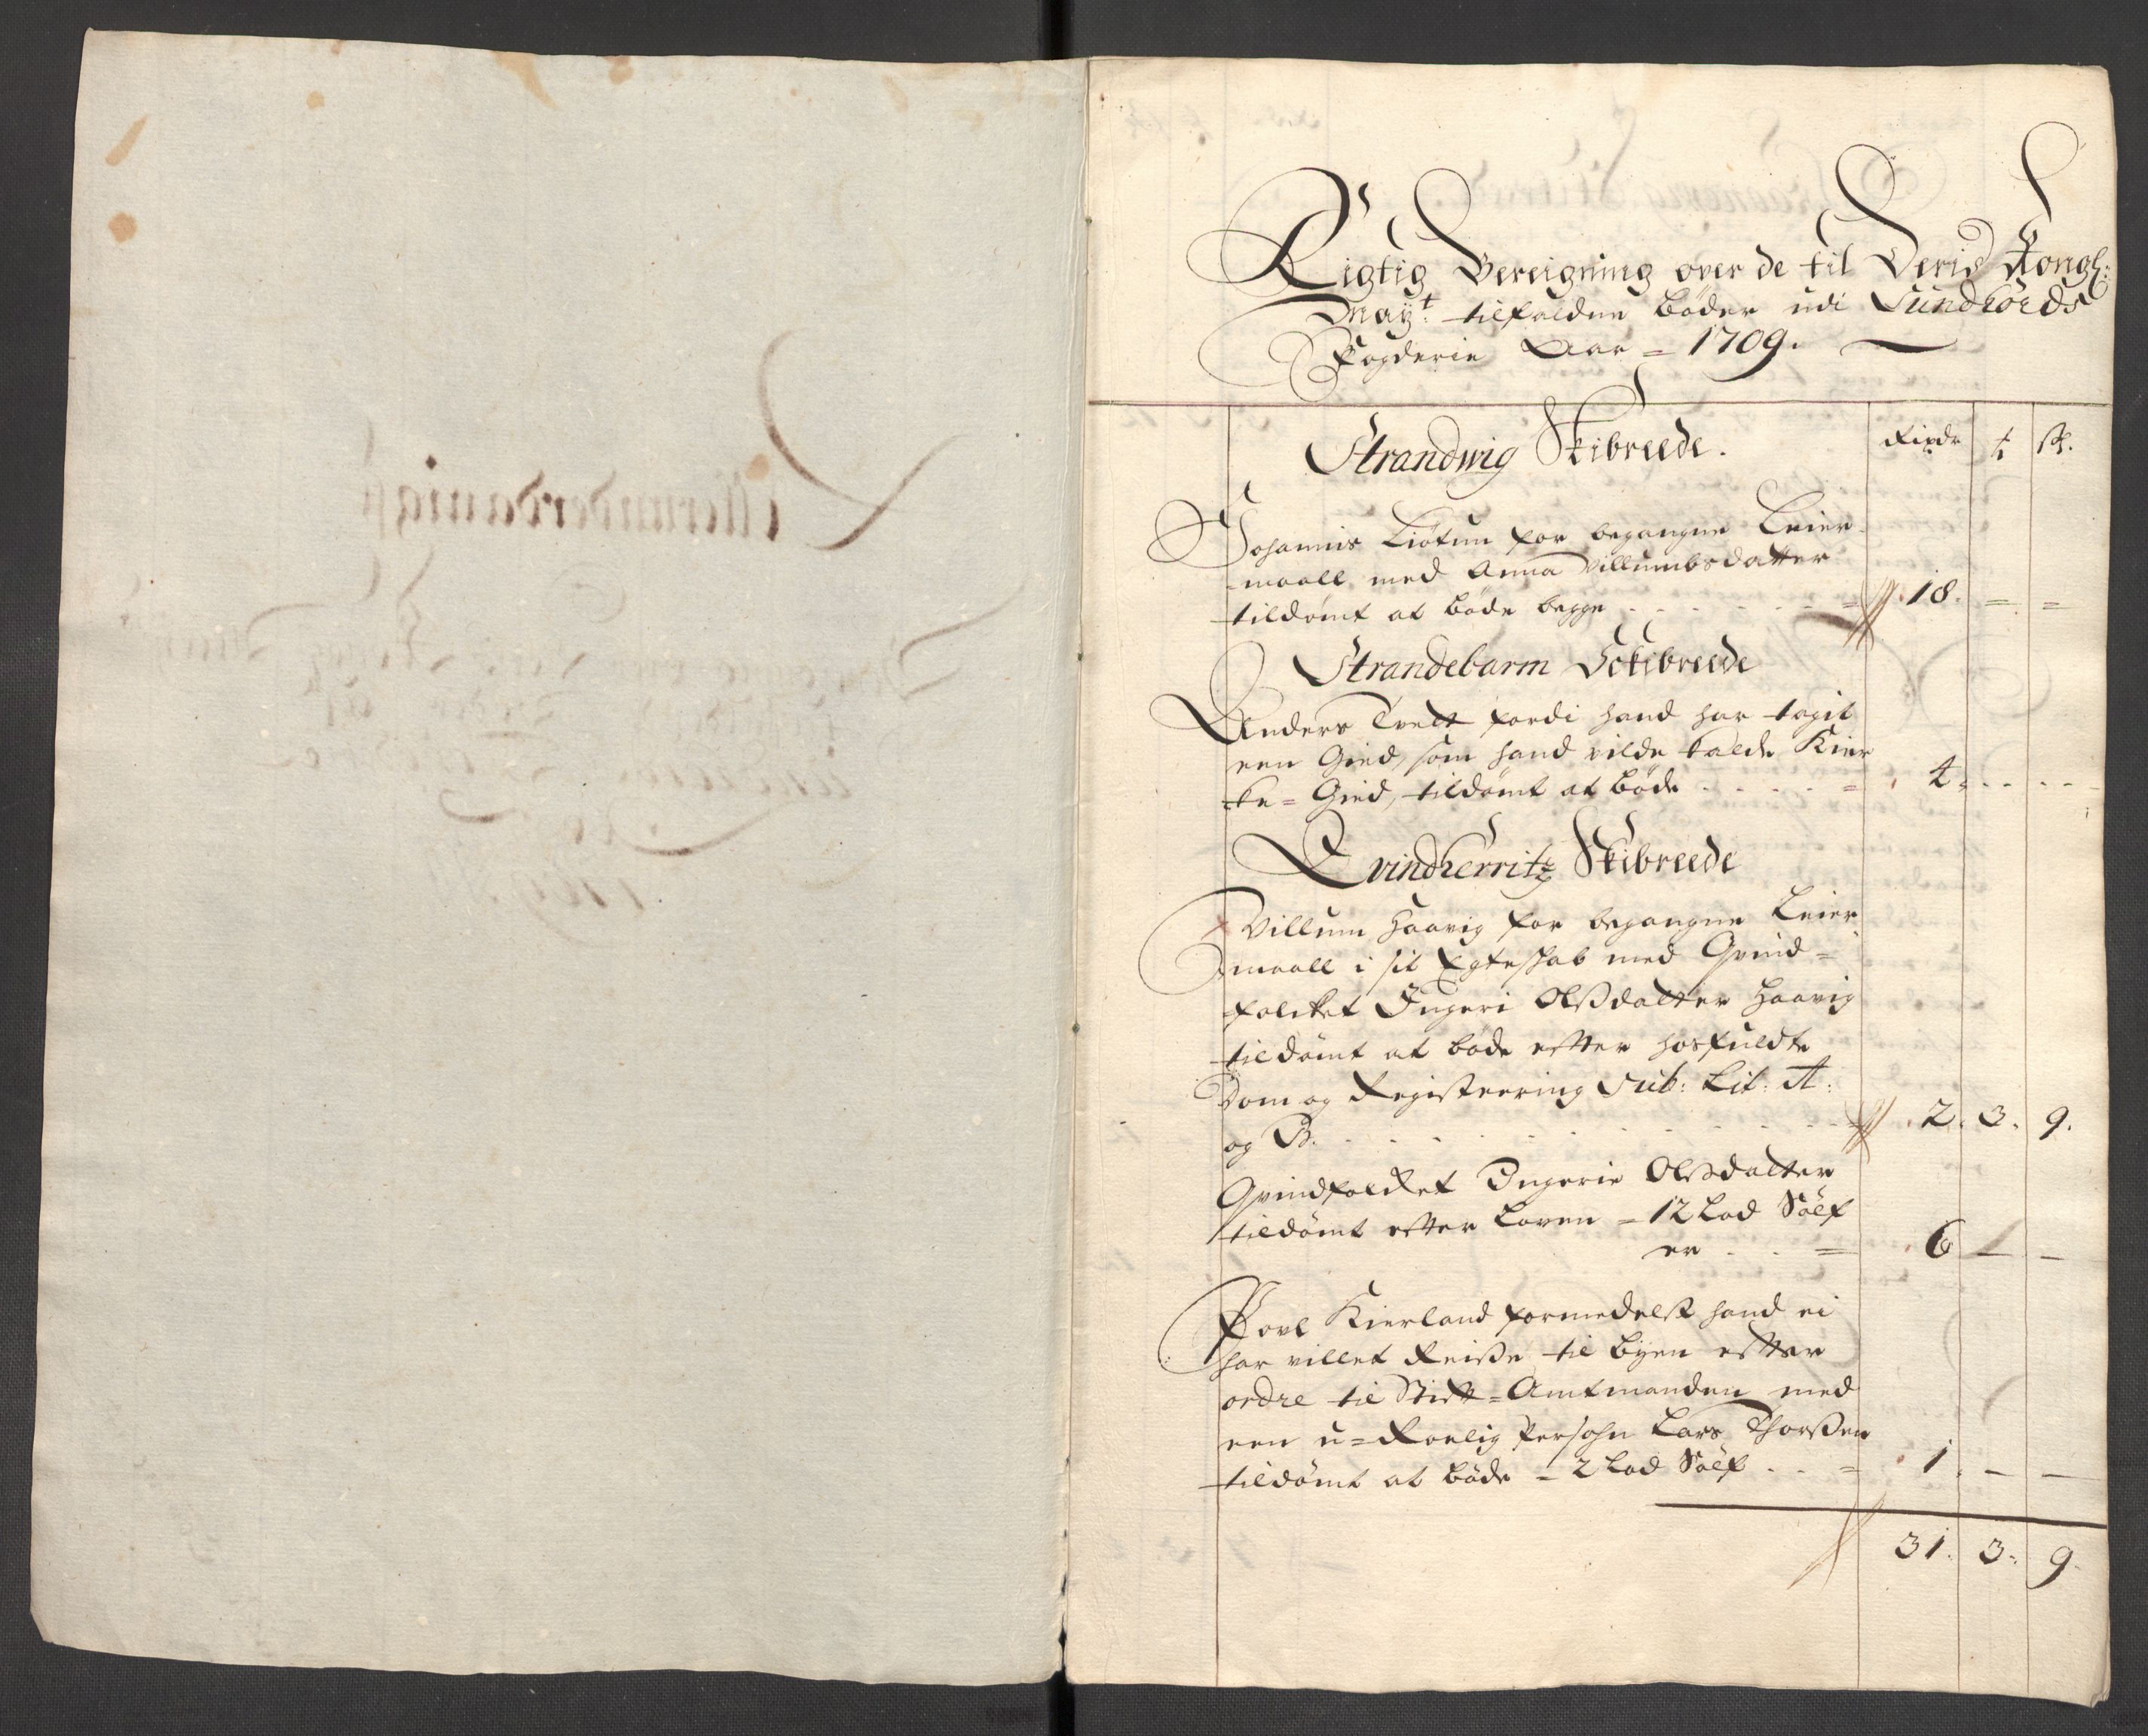 Rigtig Bereigning over de til Deris Kongl:
Mayt: tilfaldne bøder udi Sundhörds
Fogderie Aar = 1709.
Rixdr ʈ ß.
Strandwig Skibreede.
Johannis Liotun for begangne Leier
maall med Anna Villumbsdatter
tildømt at bøde begge . . . . . = 18. = =
Strandebarm Sckibreede
Anders Tvedt fordi hand har tagit
een Gied, som hand vilde kalde Kier
ke = Gied, tildømt at bøde . . . . = 4. - -
Qvindherritz Skibreede
Villum Haavig for begangne Leier
maall i sit Egteskab med Qvind =
folcket Ingeri Olsdatter Haavig
tildømt at bøde effter hosfuldte
Dom og Registeering Sub: Lit: A:
og B. . . . . . . . . 2. 3. 9.
Qvindfolcket Ingerie Olsdatter
tildømt effter Loven = 12 Lod Sölf
er . . = 6 - -
Povl Kierland formedelst hand ei
har villet Reise til byen effter
ordre til Stift = Amtmanden med
een u = Roelig Persohn Lars Thorsen
tildømt at bøde = 2 Lod Sölf . . = 1. - -
31. 3. 9.